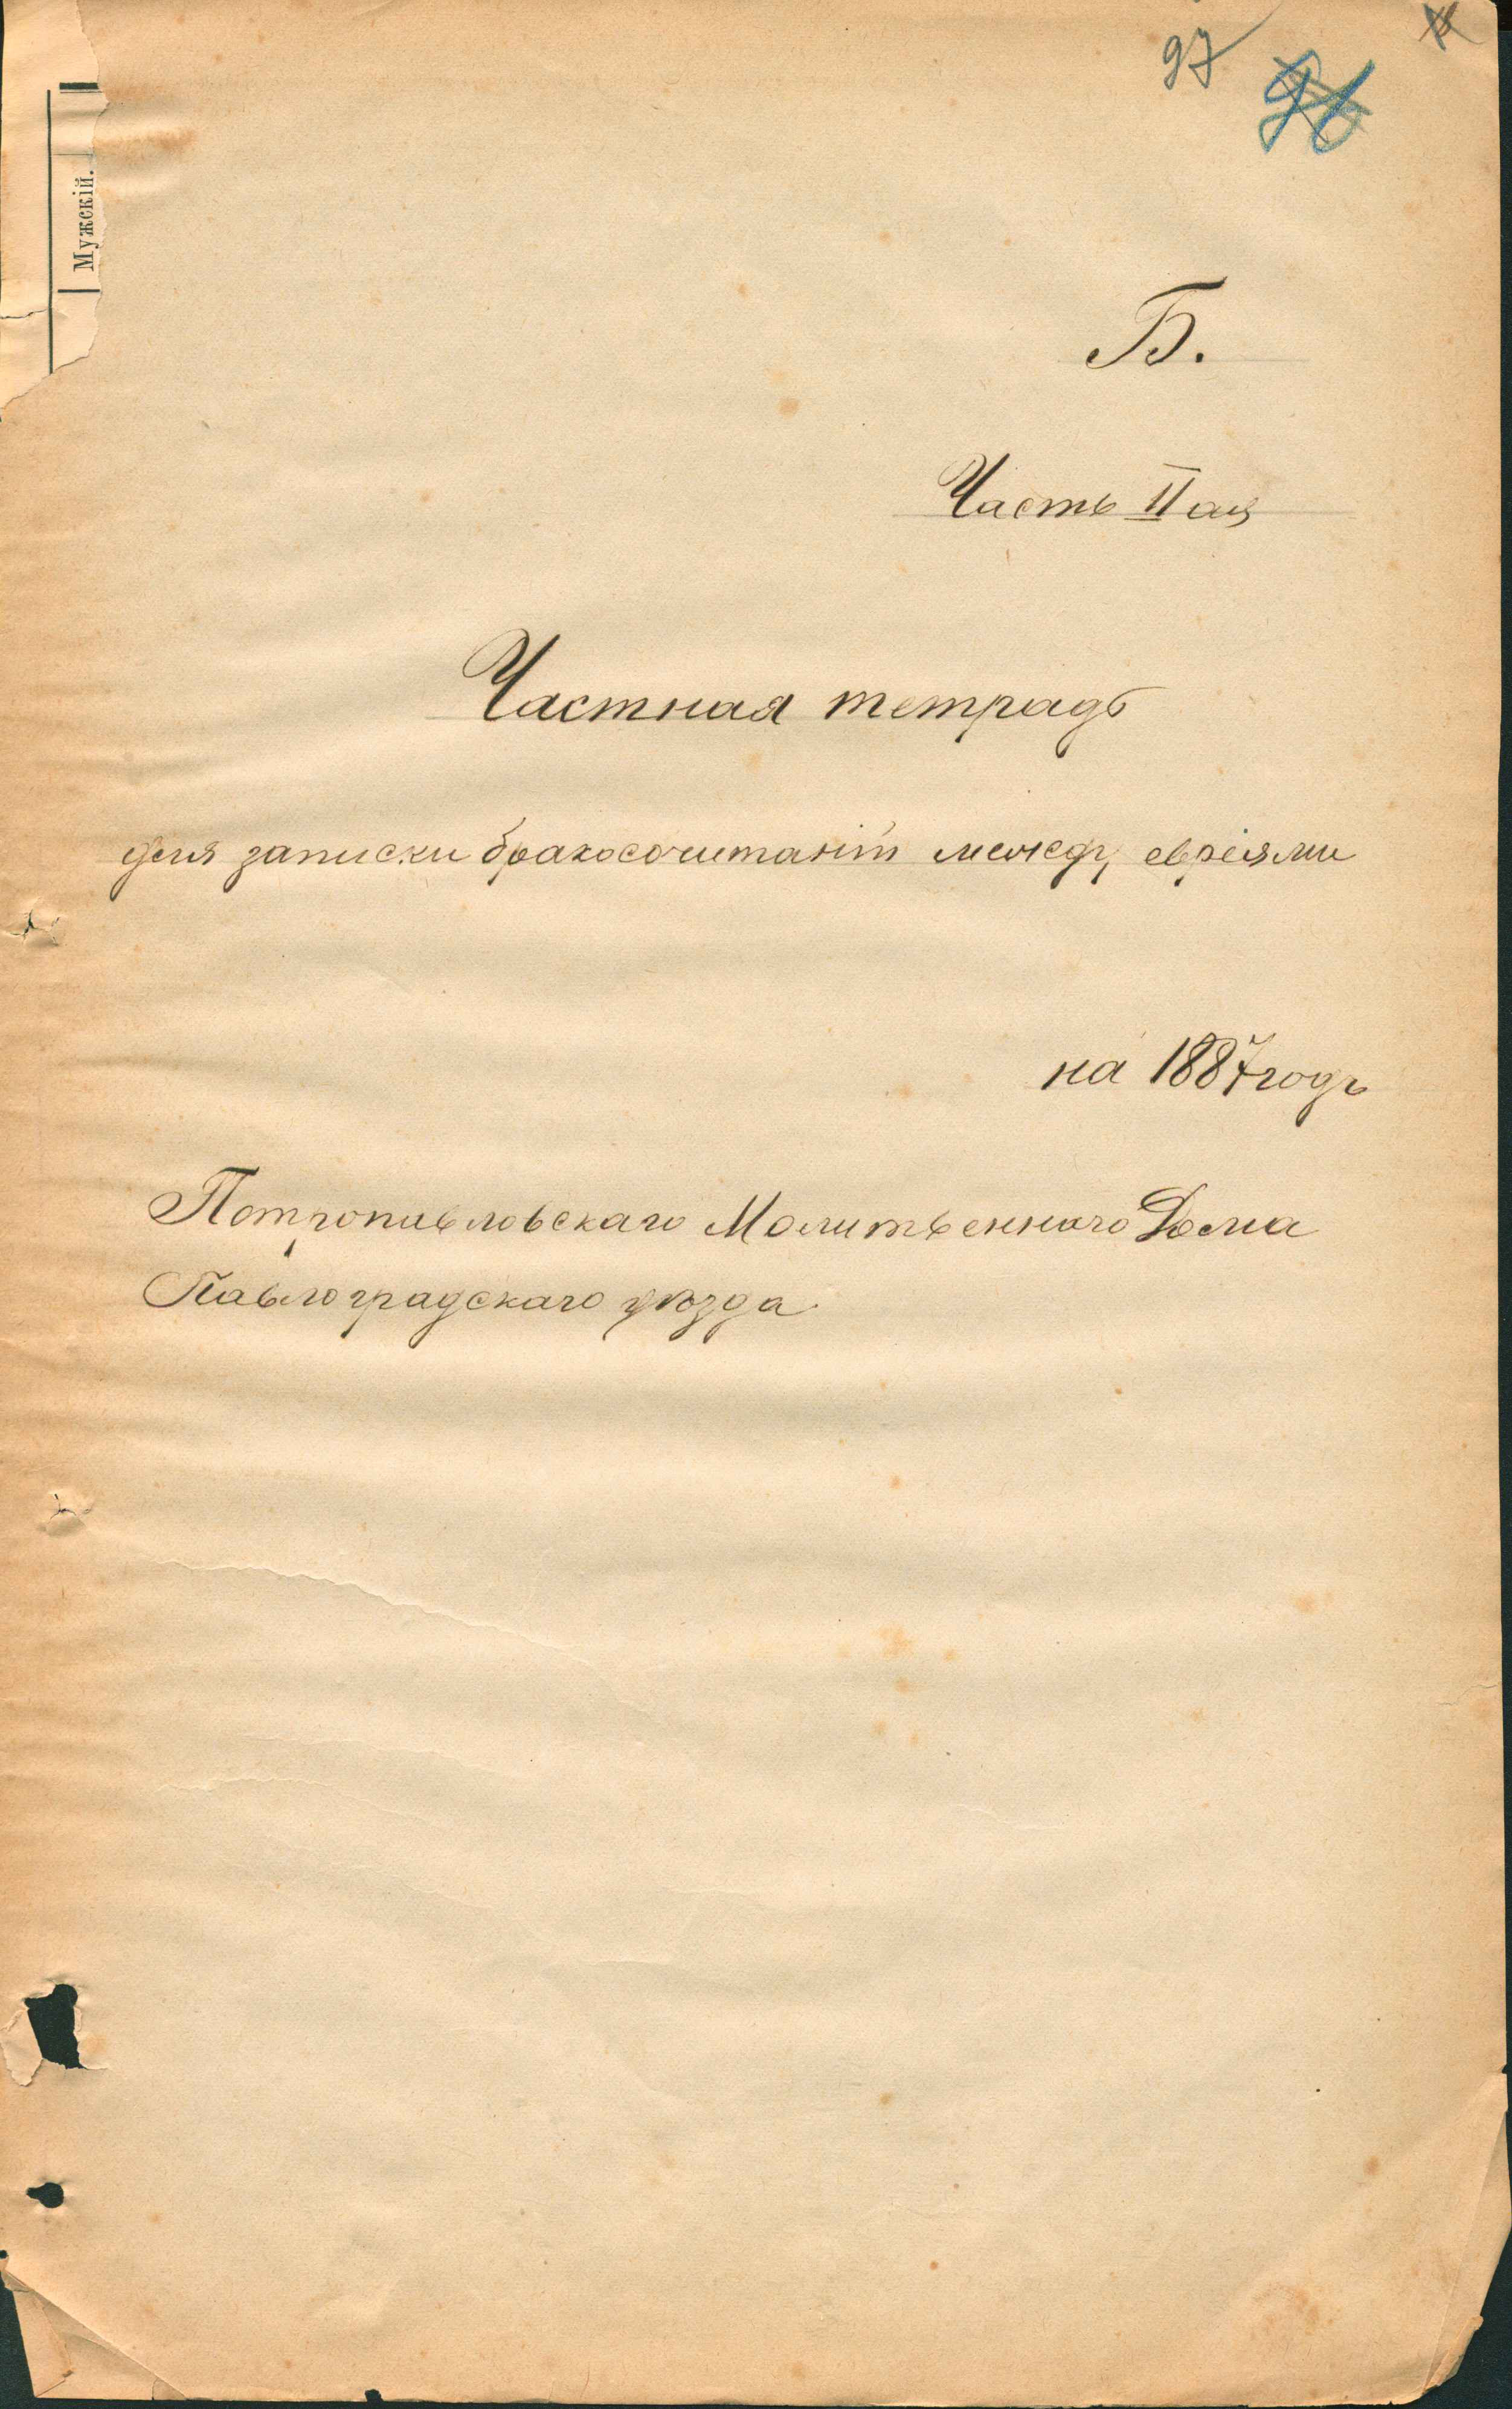 97
96
Мужскій.
Б.
Часть II ая
Частная тетрадь
для записки бракосочитаній между евреями
на 1887 годъ
Петропавловскаго Молитвеннаго Дома
Павлоградскаго уѣзда